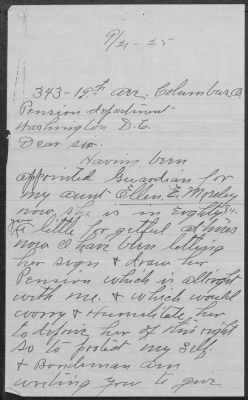 9/21-25
343-19th ave. Columbus, O
Pension department
Washington D.C.
Dear sir.
Having been
appointed Guardian for
my aunt Ellen. E. Mosely
now, she is in Eighty 84.
little forgetful at times
now I have been letting
her sign & draw her
Pension which is allright
with me. & which would
worry & Humiliate her
to deprive her of this right
so to protect my self.
& Bondsman am
writing you to give